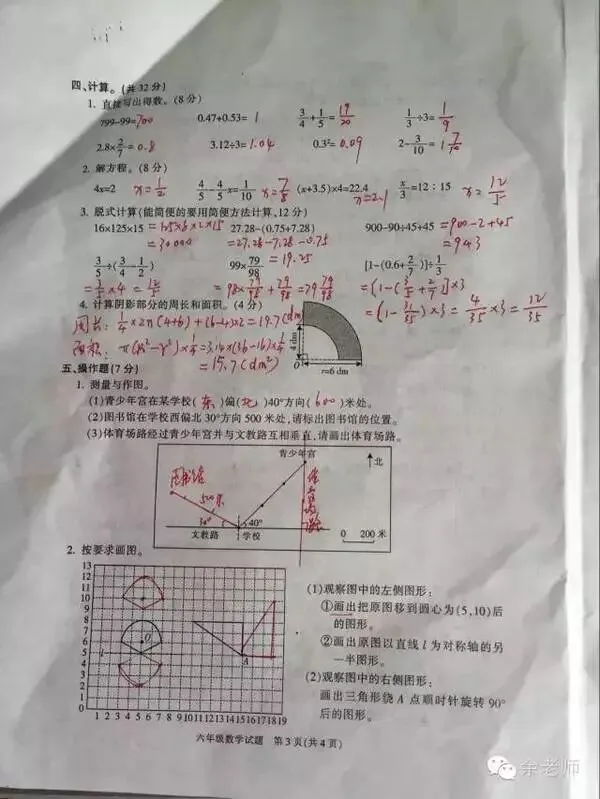 四、计算。(共32分)
1. 直接写出得数。(8分)
799-99=700 0.47+0.53=1 3/4+1/5=19/20 1/3÷3=1/9
2.8×2/7=0.8 3.12÷3=1.04 0.3²=0.09 2-3/10=1 7/10
2. 解方程。(8分)
4x=2 x=1/2 4/5-4/5x=1/10 x=7/8 (x+3.5)×4=22.4 x=2.1 x/3=12:15 x=12/5
3. 脱式计算(能简便的要用简便方法计算,12分)
16×125×15 =125×8×2×15 27.28-(0.75+7.28) 900-90÷45+45 =900-2+45
=30000 =27.28-7.28-0.75 =943
=19.25
3/5÷(3/4-1/2) 99×79/98 [1-(0.6+2/7)]÷1/3
=3/5×4=12/5 =98×79/98+79/98=79 79/98 =[1-(3/5+2/7)]×3
=(1-31/35)×3=4/35×3=12/35
4. 计算阴影部分的周长和面积。(4分)
周长:1/4×2π(4+6)+(6-4)×2=19.7(dm)
面积:π(R²-r²)×1/4=3.14×(36-16)×1/4
=15.7(dm²)
4 dm
O
r=6 dm
五、操作题(7分)
1. 测量与作图。
(1)青少年宫在某学校(东)偏(北)40°方向(600)米处。
(2)图书馆在学校西偏北30°方向500米处,请标出图书馆的位置。
(3)体育场路经过青少年宫并与文教路互相垂直,请画出体育场路。
青少年宫
北
图书馆
500米
30°
40°
文教路
学校
0 200米
2. 按要求画图。
13
12
11
10
9
8
7
6
5
4
3
2
1
0
O
l
A
1 2 3 4 5 6 7 8 9 10 11 12 13 14 15 16 17 18 19
(1)观察图中的左侧图形:
①画出把原图移到圆心为(5,10)后
的图形。
②画出原图以直线l为对称轴的另
一半图形。
(2)观察图中的右侧图形:
画出三角形绕A点顺时针旋转90°
后的图形。
六年级数学试题 第3页(共4页)
余老师